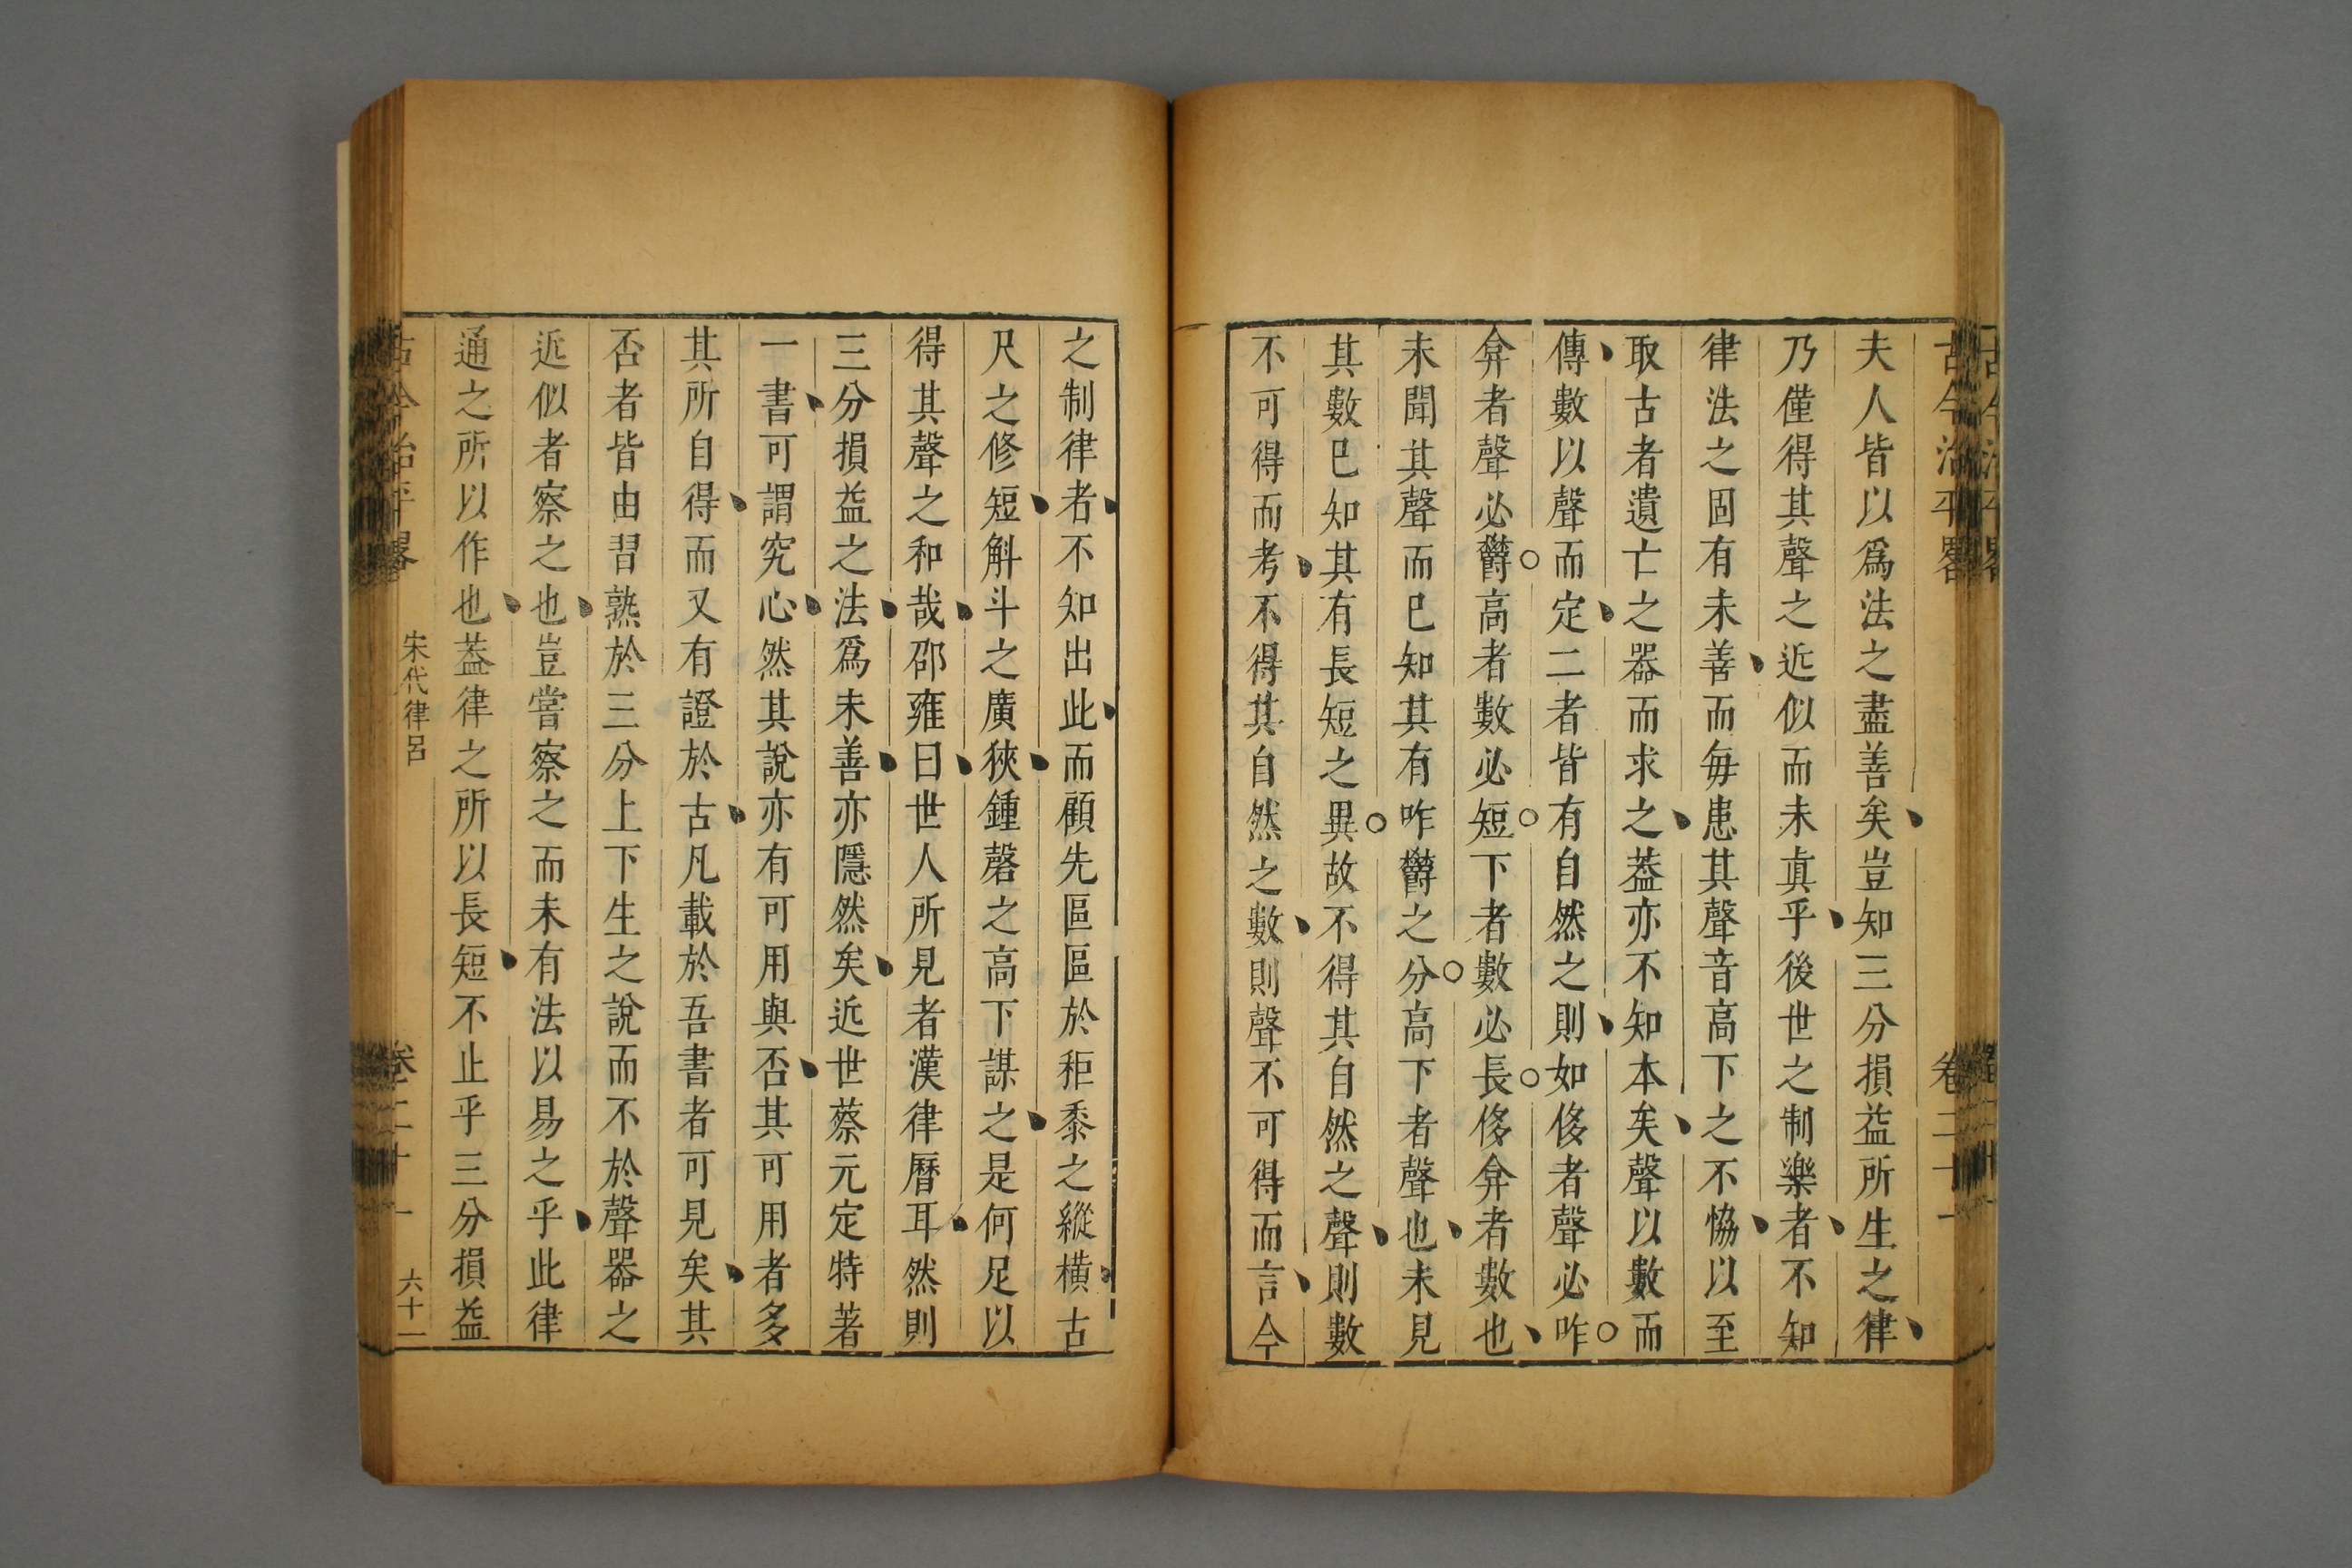 古今治平畧
卷二十一
夫人皆以爲法之盡善矣豈知三分損益所生之律
乃僅得其聲之近似而未真乎後世之制樂者不知
律法之固有未善而每患其聲音高下之不恊以至
取古者遺亡之器而求之葢亦不知本矣聲以數而
傳數以聲而定二者皆有自然之則如侈者聲必咋
弇者聲必欝高者數必短下者數必長侈弇者數也
未聞其聲而已知其有咋欝之分高下者聲也未見
其數已知其有長短之異故不得其自然之聲則數
不可得而考不得其自然之數則聲不可得而言今
之制律者不知出此而顧先區區於秬黍之縱橫古
尺之修短斛斗之廣狹鍾磬之高下謀之是何足以
得其聲之和哉邵雍曰世人所見者漢律曆耳然則
三分損益之法爲未善亦隱然矣近世蔡元定特著
一書可謂究心然其說亦有可用與否其可用者多
其所自得而又有證於古凡載於吾書者可見矣其
否者皆由習熟於三分上下生之說而不於聲器之
近似者察之也豈嘗察之而未有法以易之乎此律
通之所以作也葢律之所以長短不止乎三分損益
古今治平畧
宋代律呂
卷二十一
六十一